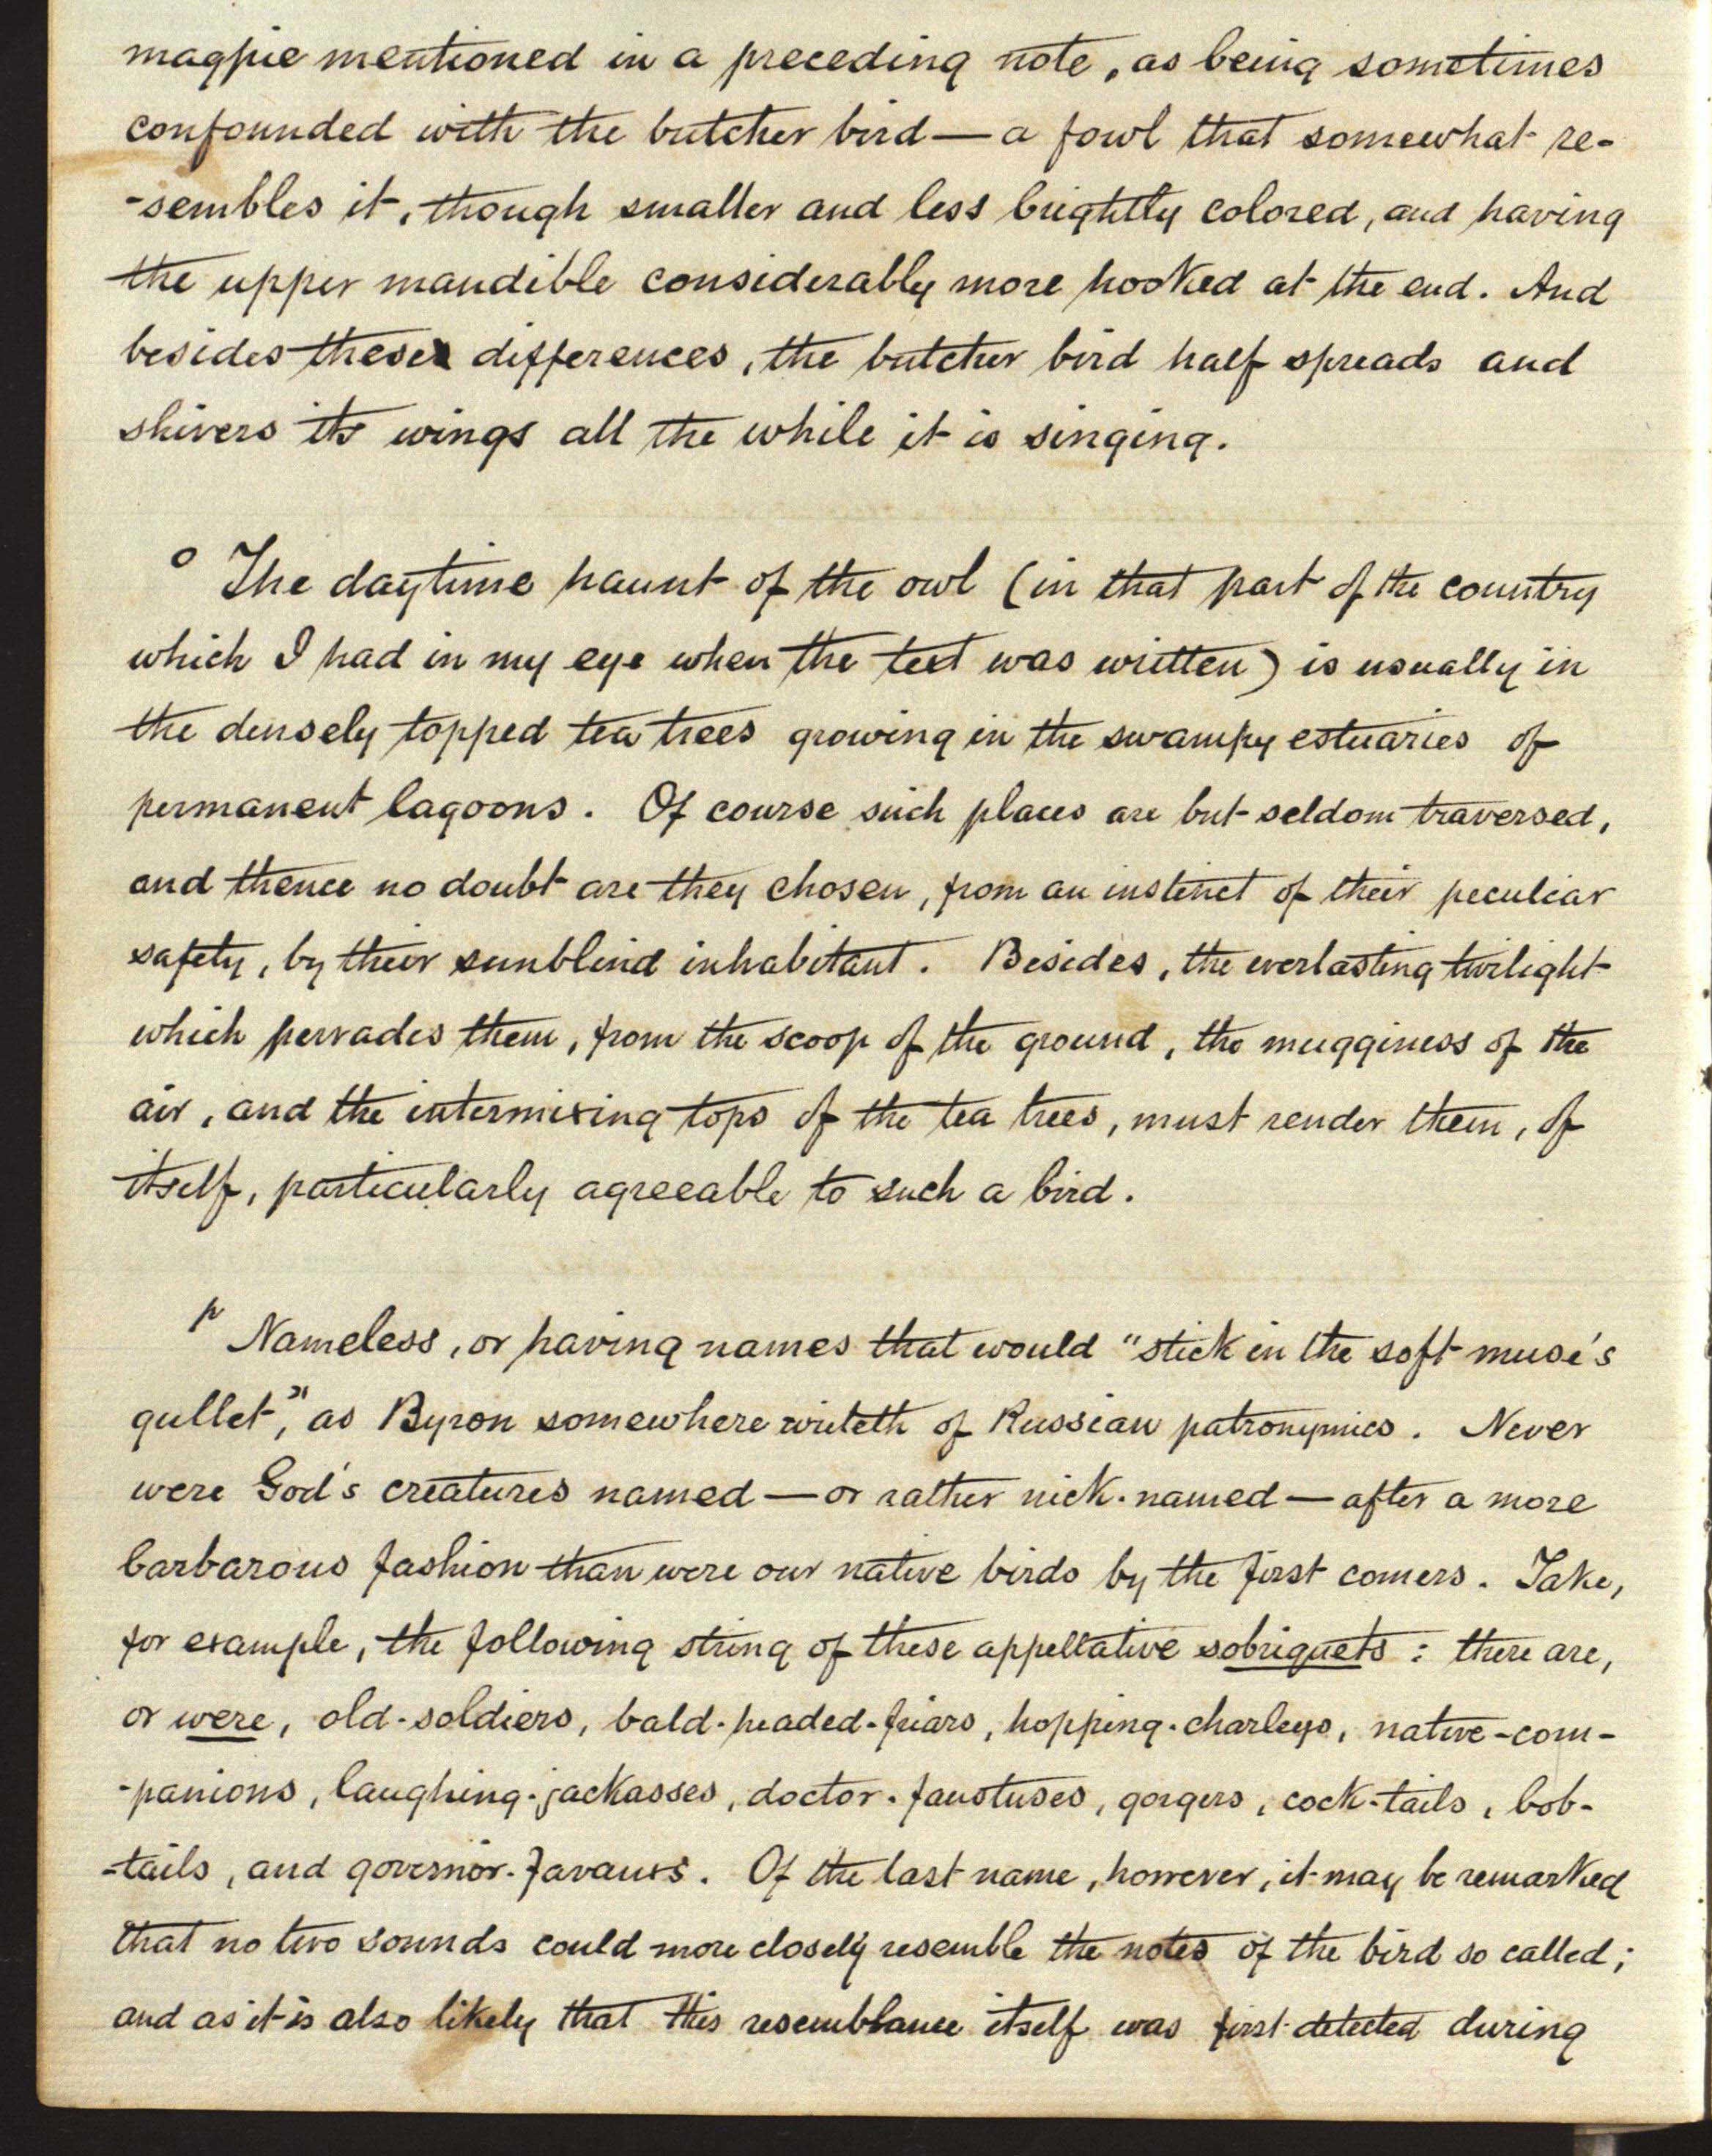 magpie mentioned in a preceding note, as being sometimes
confounded with the butcher bird — a fowl that somewhat re-
-sembles it, though smaller and less brightly colored, and having
the upper mandible considerably more hooked at the end. And
besides these differences, the butcher bird half spreads and
shivers its wings all the while it is singing.
o The daytime haunt of the owl (in that part of the country
which I had in my eye when the text was written) is usually in
the densely topped tea trees growing in the swampy estuaries of
permanent lagoons. Of course such places are but seldom traversed,
and thence no doubt are they chosen, from an instinct of their peculiar
safety, by their sunblind inhabitant. Besides, the everlasting twilight
which pervades them, from the scoop of the ground, the mugginess of the
air, and the intermixing tops of the tea trees, must render them, of
itself, particularly agreeable to such a bird.
p Nameless, or having names that would "stick in the soft muse's
gullet," as Byron somewhere writeth of Russian patronymics. Never
were God's creatures named — or rather nick-named — after a more
barbarous fashion than were our native birds by the first comers. Take,
for example, the following string of these appellative sobriquets: there are,
or were, old-soldiers, bald-headed-friars, hopping-charleys, native-com-
-panions, laughing-jackasses, doctor-faustuses, gorgers, cock-tails, bob-
-tails, and governor-. Of the last name, however, it may be remarked
that no two sounds could more closely resemble the notes of the bird so called;
and as it is also likely that this resemblance itself was first detected during